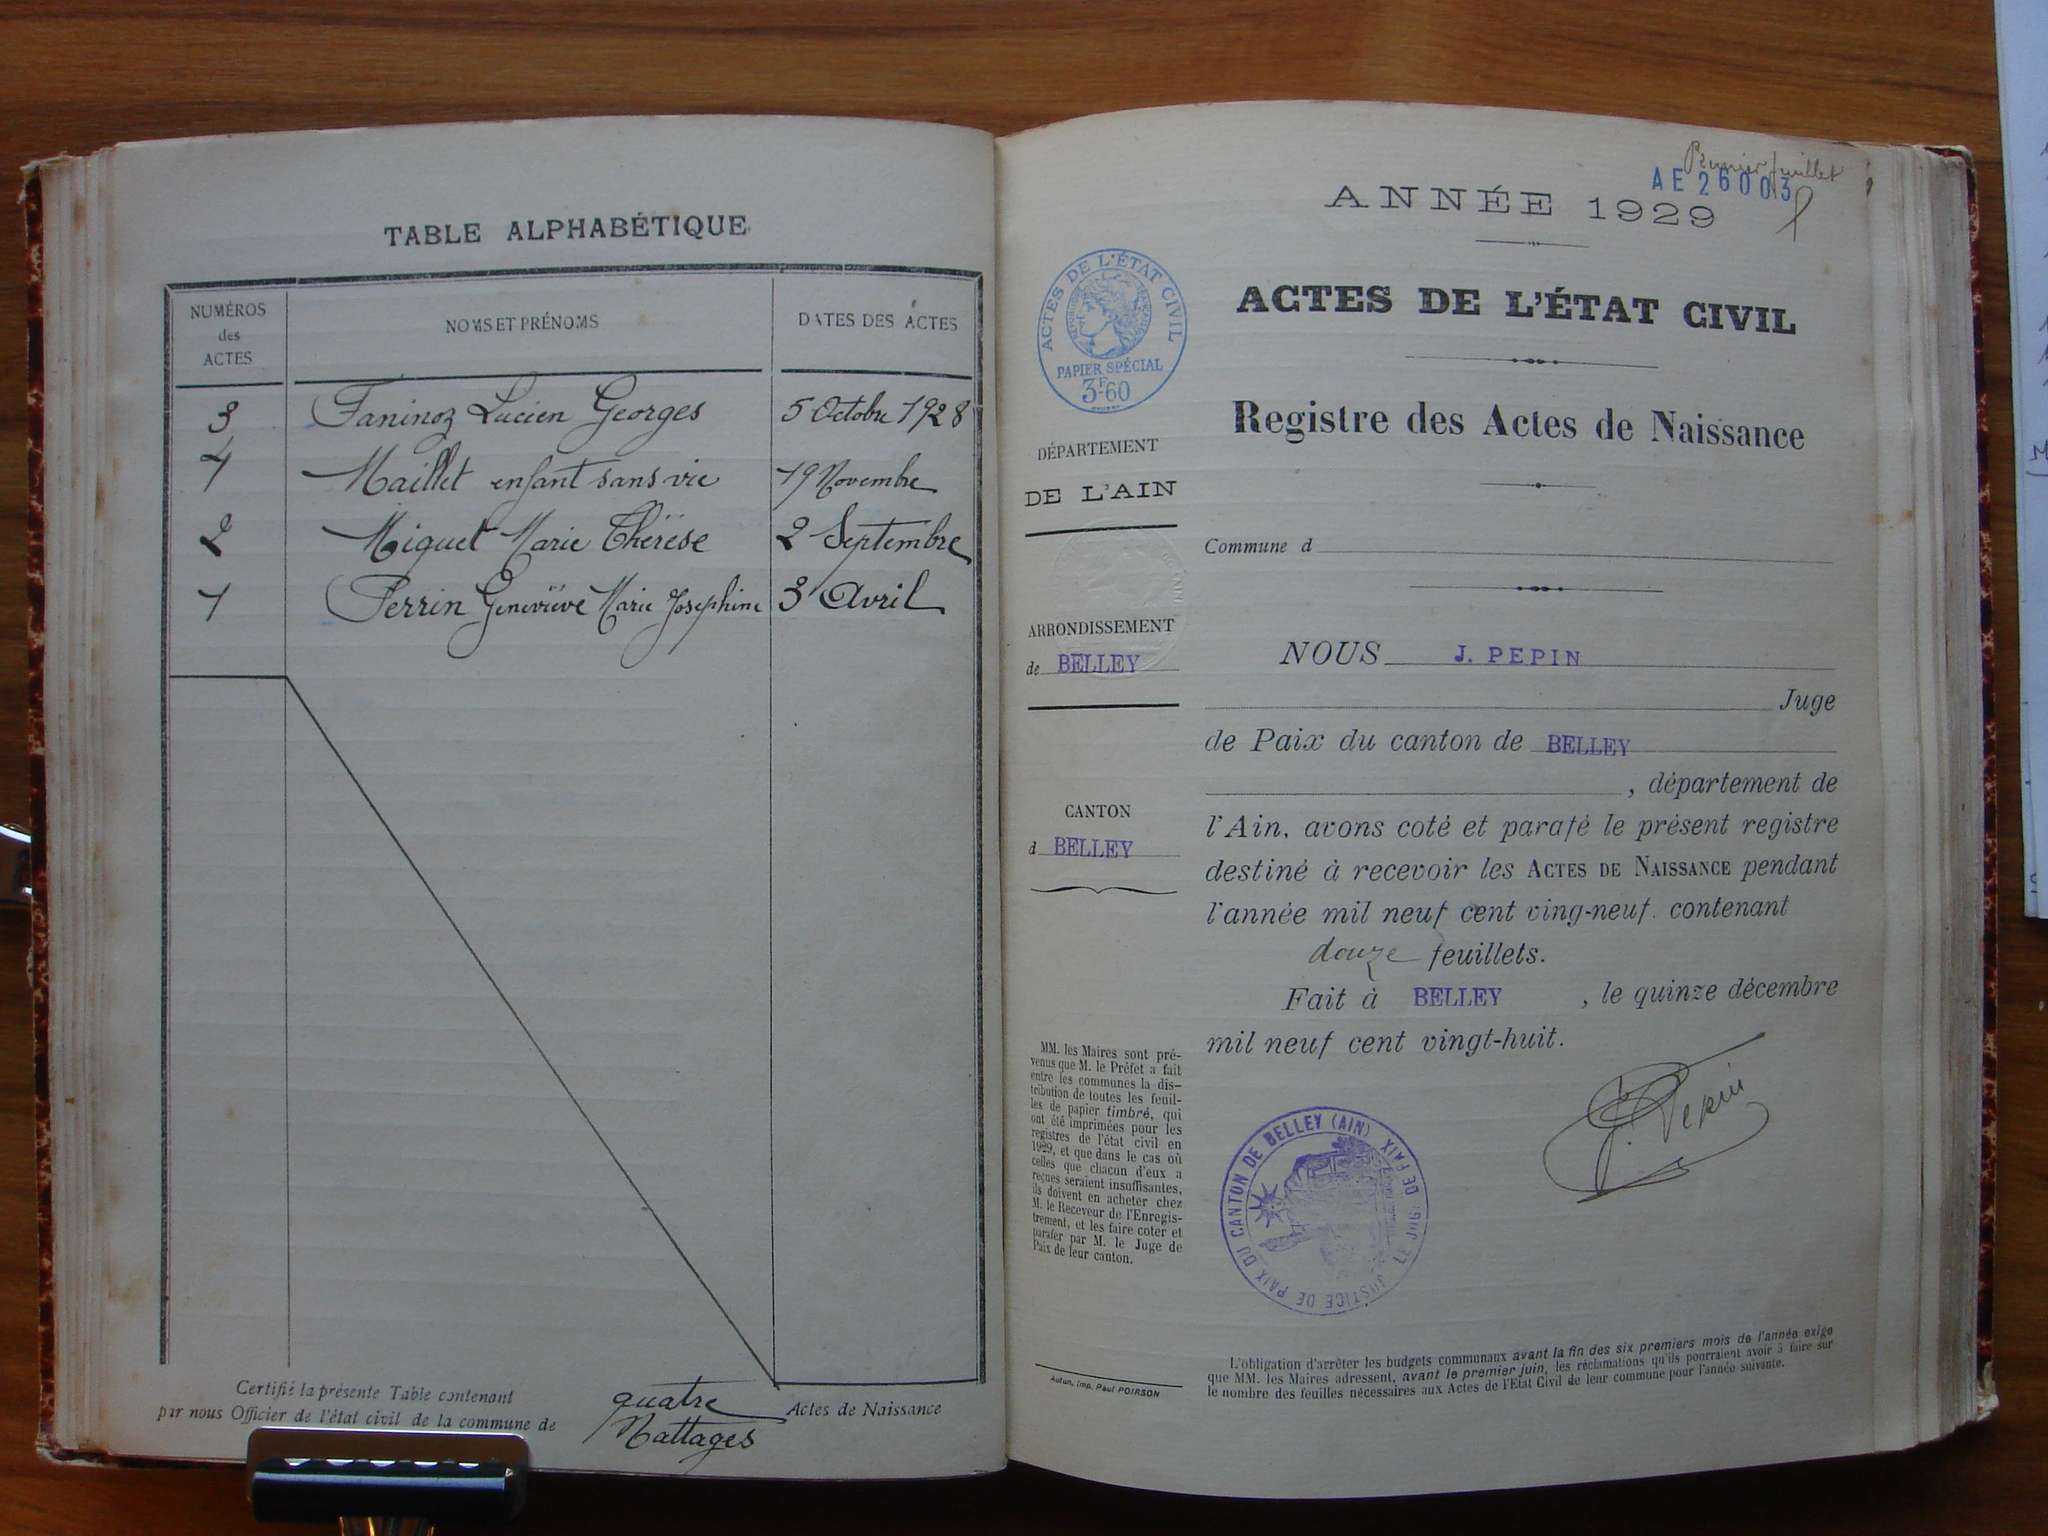 TABLE ALPHABÉTIQUE
NUMÉROS
des
ACTES
NOMS ET PRÉNOMS
DATES DES ACTES
3 Faninoz Lucien Georges 5 Octobre 1928
4 Maillet enfant sans vie 19 Novembre
2 Miquet Marie Thérèse 2 Septembre
1 Perrin Geneviève Marie Josephine 3 Avril
Certifié la présente Table contenant quatre Actes de Naissance
par nous Officier de l'état civil de la commune de Nattages
Premier feuillet
AE 26003
ANNÉE 1929
ACTES DE L'ÉTAT CIVIL
RÉPUBLIQUE FRANÇAISE
PAPIER SPÉCIAL
3F.60
ACTES DE L'ÉTAT CIVIL
Registre des Actes de Naissance
DÉPARTEMENT
DE L'AIN
Commune d
ARRONDISSEMENT
de BELLEY
CANTON
d BELLEY
NOUS J. PEPIN
Juge
de Paix du canton de BELLEY
, département de
l'Ain, avons coté et parafé le présent registre
destiné à recevoir les ACTES DE NAISSANCE pendant
l'année mil neuf cent ving-neuf. contenant
douze feuillets.
Fait à BELLEY , le quinze décembre
mil neuf cent vingt-huit.
J. Pepin
MM. les Maires sont pré-
venus que M. le Préfet a fait
entre les communes la dis-
tribution de toutes les feuil-
les de papier timbré, qui
ont été imprimées pour les
registres de l'état civil en
1929, et que dans le cas où
celles que chacun d'eux a
reçues seraient insuffisantes,
ils doivent en acheter chez
M. le Receveur de l'Enregis-
trement, et les faire coter et
parafer par M. le Juge de
Paix de leur canton.
JUSTICE DE PAIX DU CANTON DE BELLEY (AIN)
LE JUGE DE PAIX
Autun, Imp. Paul POIRSON
L'obligation d'arrêter les budgets communaux avant la fin des six premiers mois de l'année exige
que MM. les Maires adressent, avant le premier juin, les réclamations qu'ils pourraient avoir à faire sur
le nombre des feuilles nécessaires aux Actes de l'Etat Civil de leur commune pour l'année suivante.